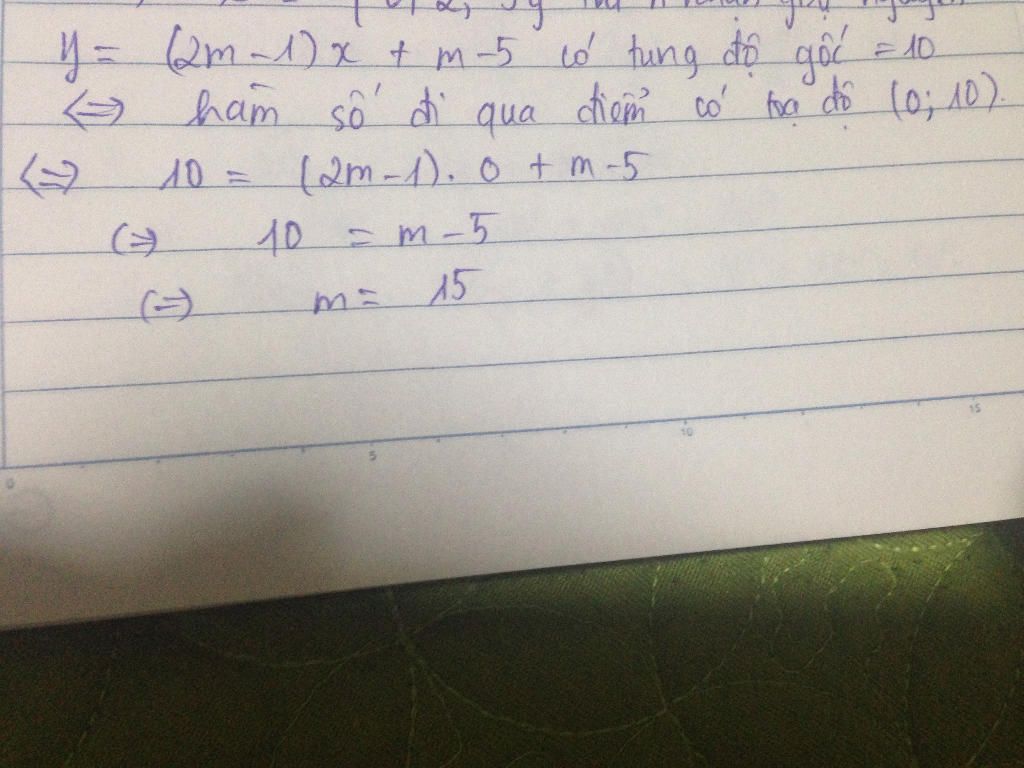 y = (2m-1)x + m-5 có tung độ gốc = 10
<=> hàm số đi qua điểm có toạ độ (0; 10).
<=> 10 = (2m-1). 0 + m-5
<=> 10 = m-5
<=> m = 15
0 5 10 15